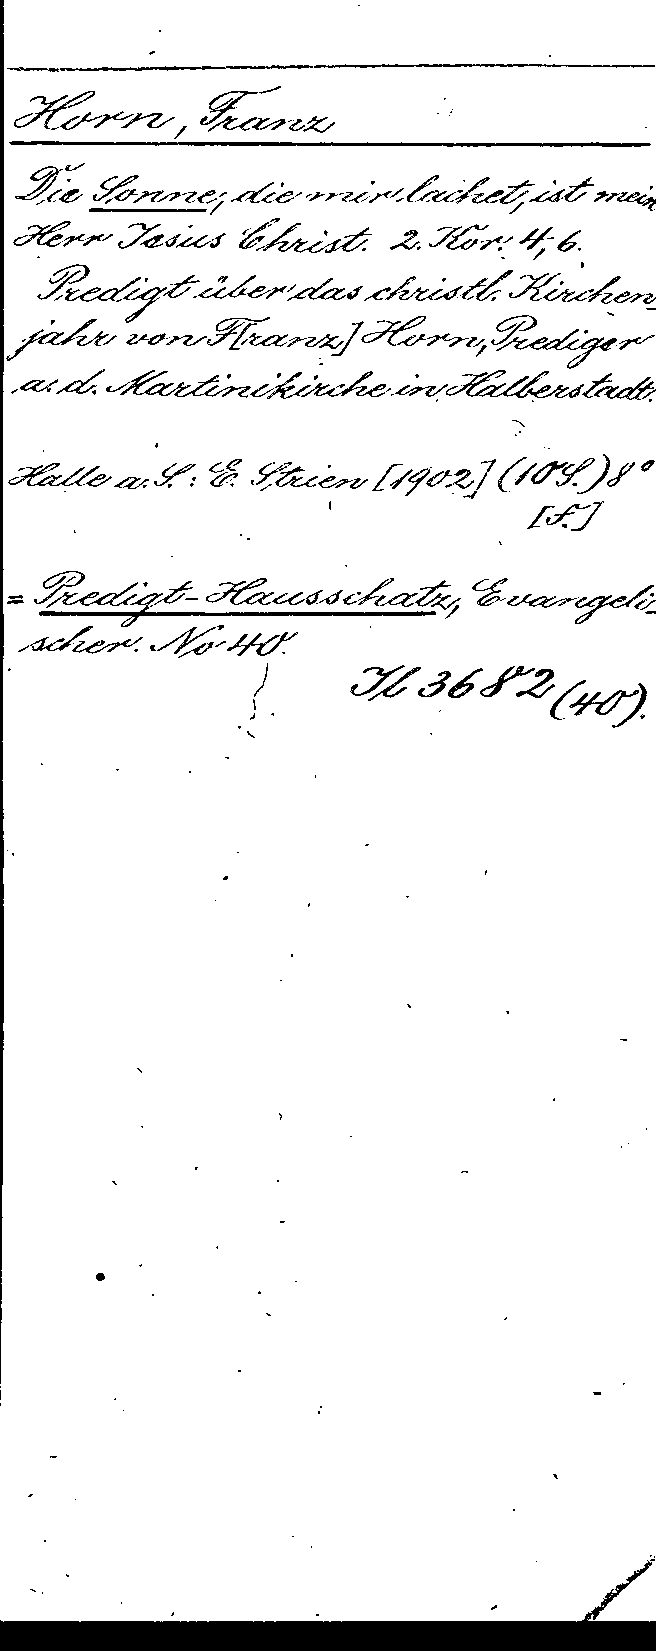 Horn, Franz
Die Sonne, die mir lachet, ist mein
Herr Jesus Christ. 2. Kor. 4, 6.
Predigt über das christl. Kirchen-
jahr von F[ranz] Horn, Prediger
a. d. Martinikirche in Halberstadt.
Halle a. S. : E. Strien [1902] (10 S.) 8°
[f.]
= Predigt-Hausschatz, Evangeli-
scher. No 40.
Il 3682 (40).